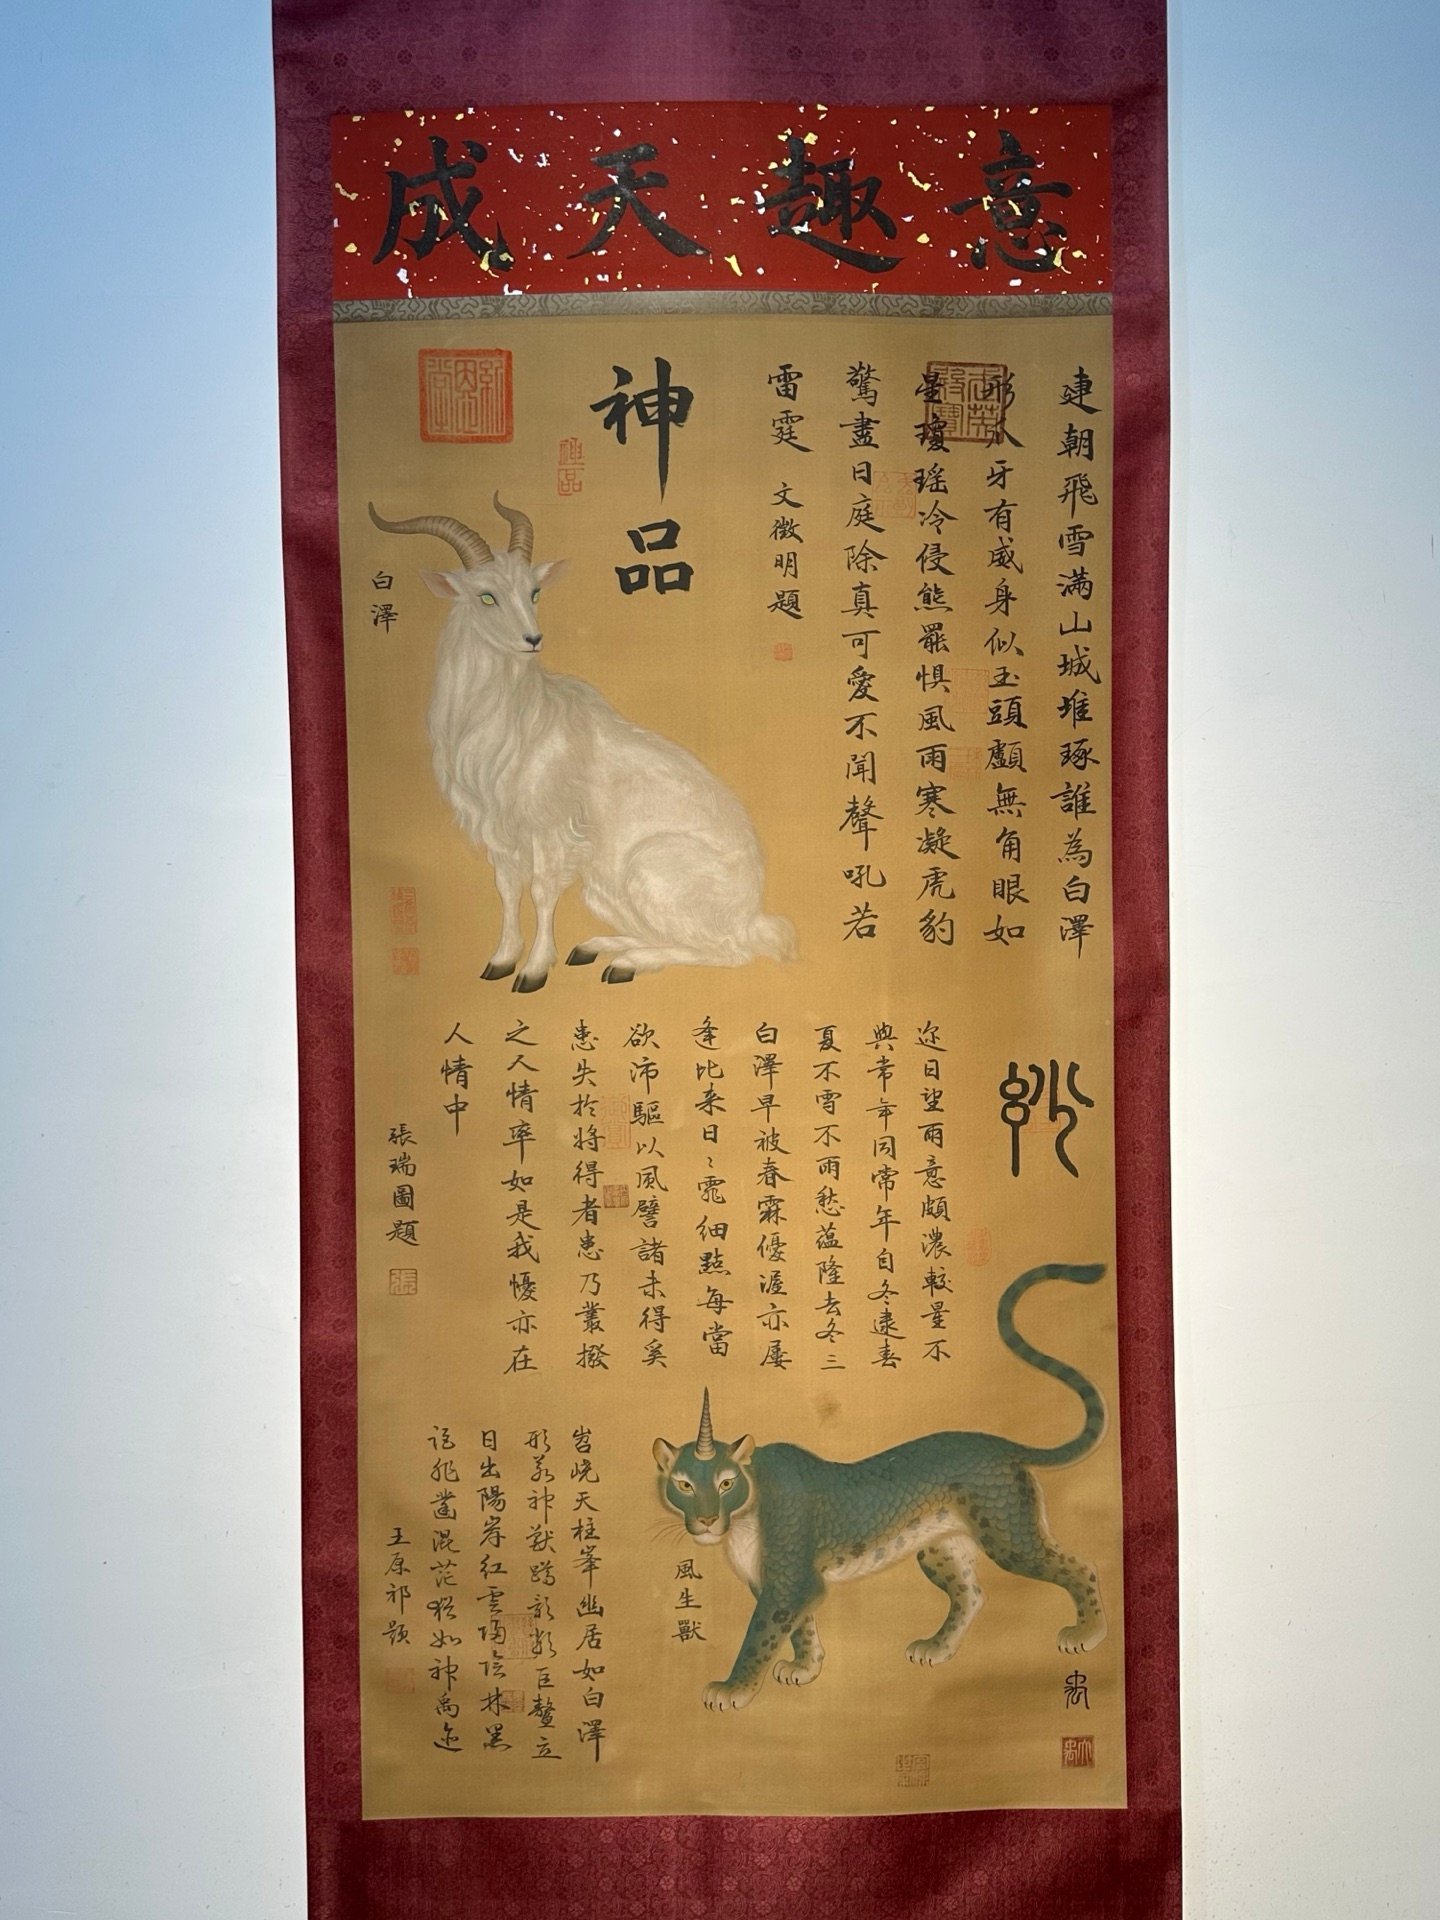 意趣天成
連朝飛雪滿山城堆琢誰為白澤
形爪牙有威身似玉頭顱無角眼如
星瓊瑤冷侵熊羆惧風雨寒凝虎豹
驚盡日庭除真可愛不聞聲吼若
雷霆
文徵明題
神品
白澤
妙
迩日望雨意頗濃較量不
與常年同常年自冬逮春
夏不雪不雨愁蘊隆去冬三
白澤早被春霖優渥亦屡
逢比来日〻霏細點每當
欲沛驅以風譬諸未得奚
患失於将得者患乃叢撥
之人情率如是我憂亦在
人情中
張瑞圖題
風生獸
岧嶢天柱峯幽居如白澤
形若神獸蹲影類巨鼇立
日出陽岸紅雲歸陰林黑
詎非鑿混茫猶如神禹迹
王原祁題